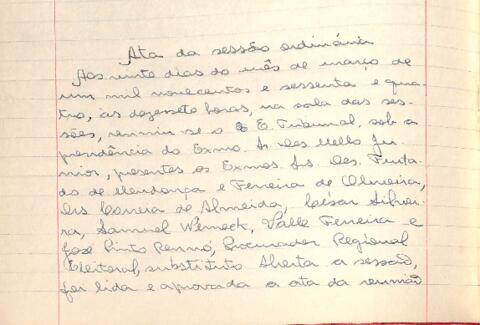 Ata da sessão ordinária
Aos vinte dias do mês de março de
um mil novecentos e sessenta e qua-
tro, às dezessete horas, na sala das ses-
sões, reuniu-se o E. Tribunal, sob a
presidência do Exmo. Sr. Des. Mello Ju-
nior, presentes os Exmos. Srs. Des. Furta-
do de Mendonça e Ferreira de Oliveira,
Drs. Correia de Almeida, César Silvei-
ra, Samuel Werneck, Valle Ferreira e
José Pinto Renno, Procurador Regional
Eleitoral, substituto. Aberta a sessão,
foi lida e aprovada a ata da reunião